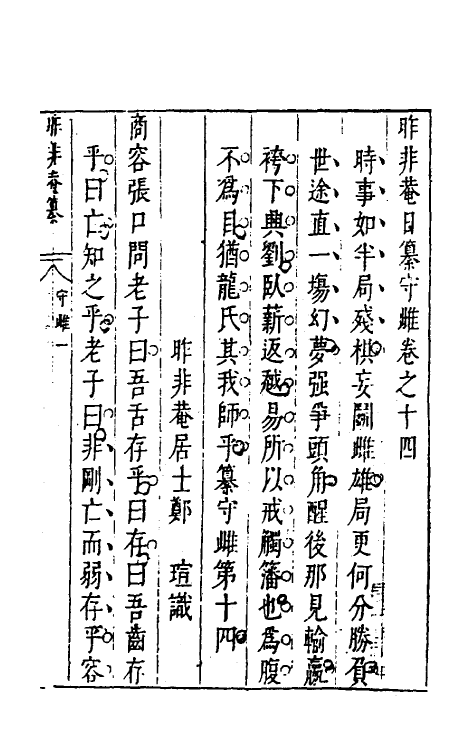 昨非菴日纂守雌卷之十四
時事如半局殘棋妄鬭雌雄局更何分勝負
世途直一塲幻夢强爭頭角醒後那見輸贏
袴下興劉臥薪返越易所以戒觸籓也為腹
不為目猶龍氏其我師乎纂守雌第十四
昨非菴居士鄭 瑄識
商容張口問老子曰吾舌存乎曰存曰吾齒存
乎曰亡知之乎老子曰非剛亡而弱存乎容
昨非菴纂
守雌一